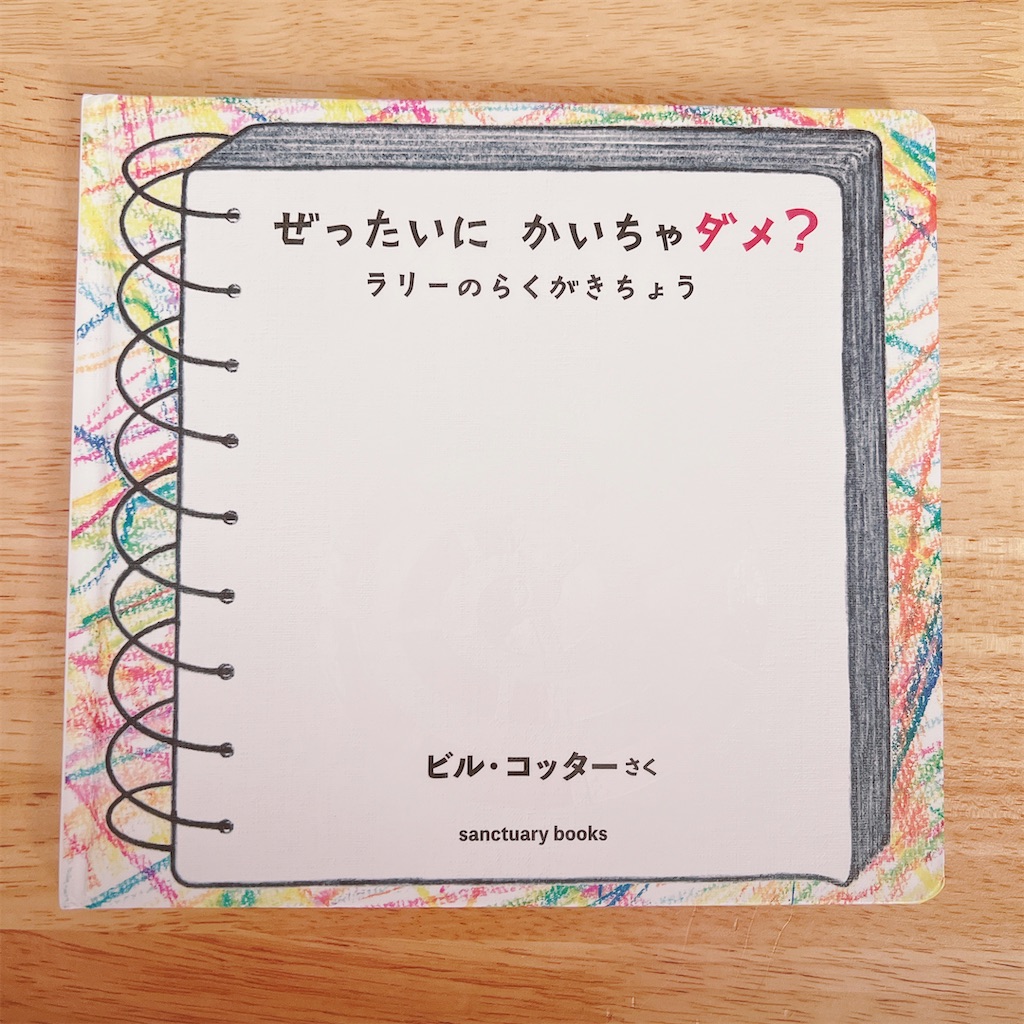 ぜったいに かいちゃダメ?
ラリーのらくがきちょう
ビル・コッター さく
sanctuary books